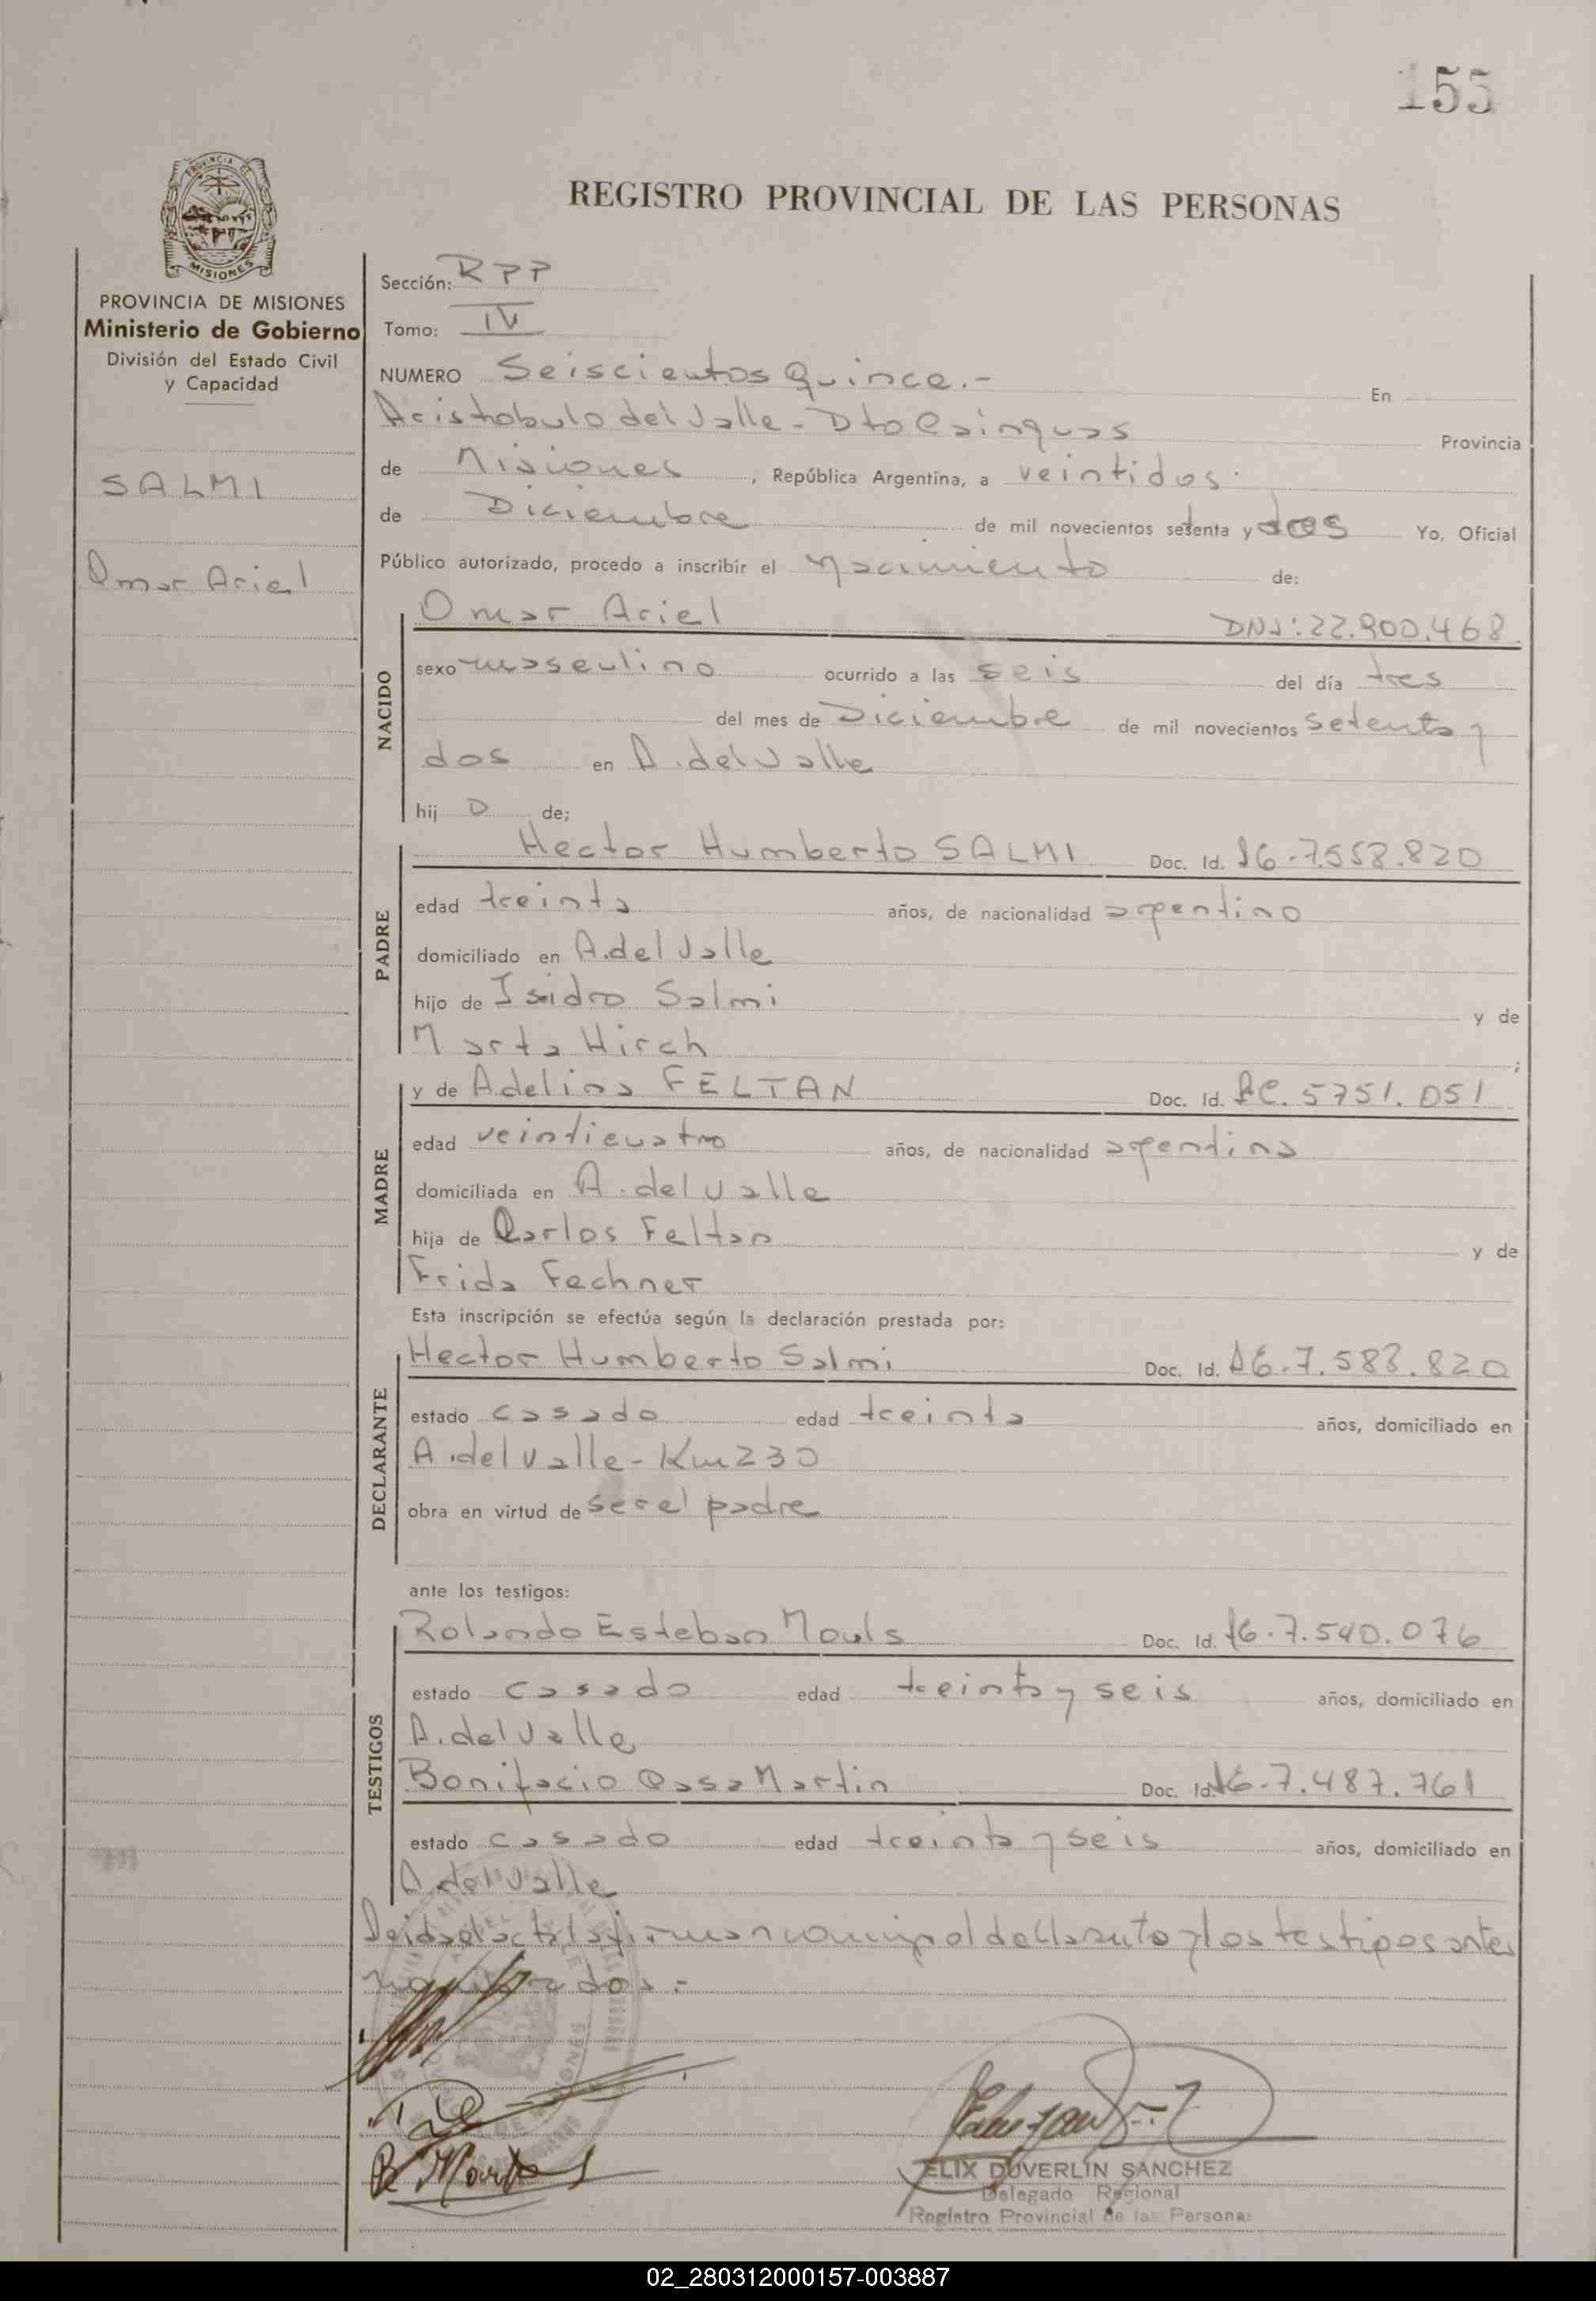 155
PROVINCIA DE
MISIONES
REGISTRO PROVINCIAL DE LAS PERSONAS
PROVINCIA DE MISIONES
Ministerio de Gobierno
División del Estado Civil
y Capacidad
SALMI
Omar Ariel
Sección: RPP
Tomo: IV
NUMERO Seiscientos Quince.- En
Aristobulo del Valle - Dto Cainguas Provincia
de Misiones, República Argentina, a veintidos
de Diciembre de mil novecientos setenta y dos Yo, Oficial
Público autorizado, procedo a inscribir el Nacimiento de:
NACIDO
Omar Ariel DNI: 22.900.468
sexo masculino ocurrido a las seis del día tres
del mes de Diciembre de mil novecientos setenta y
dos en A. del Valle
hij o de;
PADRE
Hector Humberto SALMI Doc. Id. 16-7.558.820
edad treinta años, de nacionalidad argentino
domiciliado en A. del Valle
hijo de Isidro Salmi y de
Marta Hirch ;
MADRE
y de Adelina FELTAN Doc. Id. LC. 5751.051
edad veinticuatro años, de nacionalidad argentina
domiciliada en A. del Valle
hija de Carlos Feltan y de
Frida Fechner
Esta inscripción se efectúa según la declaración prestada por:
DECLARANTE
Hector Humberto Salmi Doc. Id. 16.7.588.820
estado casado edad treinta años, domiciliado en
A. del Valle - Km 230
obra en virtud de ser el padre
ante los testigos:
TESTIGOS
Rolando Esteban Mouls Doc. Id. 16.7.540.076
estado casado edad treinta y seis años, domiciliado en
A. del Valle
Bonifacio Casa Martin Doc. Id. 16-7.487.761
estado casado edad treinta y seis años, domiciliado en
A. del Valle
Leida el acta la firman conmigo el declarante y los testigos antes
nombrados.-
B. Martin
FELIX DUVERLIN SANCHEZ
Delegado Regional
Registro Provincial de las Personas
02_280312000157-003887